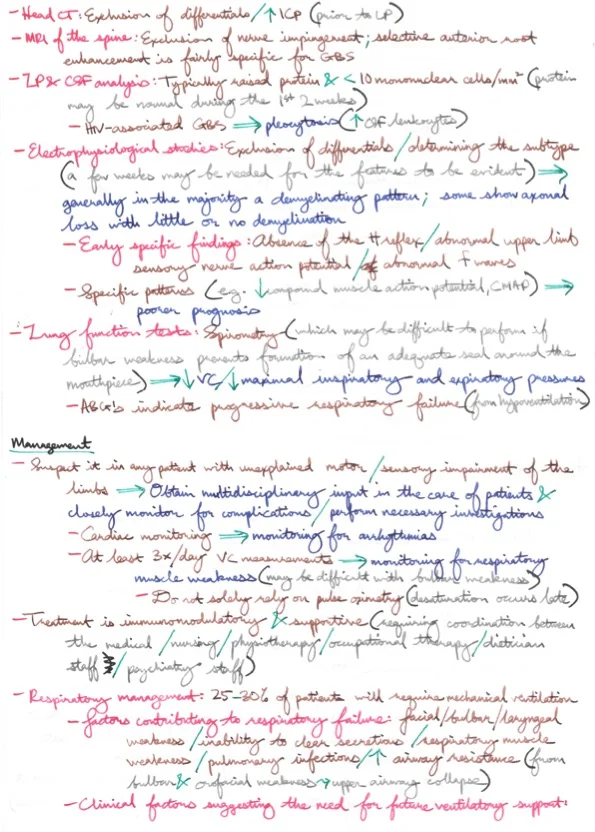 - Head CT: Exclusion of differentials/↑ ICP (prior to LP)
- MRI of the spine: Exclusion of nerve impingement; selective anterior root
enhancement is fairly specific for GBS
- LP & CSF analysis: Typically raised protein & < 10 mononuclear cells/mm² (protein
may be normal during the 1st 2 weeks)
- HIV-associated GBS ⇒ pleocytosis (↑ CSF leukocytes)
- Electrophysiological studies: Exclusion of differentials/determining the subtype
(a few weeks may be needed for the features to be evident) ⇒
generally in the majority a demyelinating pattern; some show axonal
loss with little or no demyelination
- Early specific findings: Absence of the H reflex/abnormal upper limb
sensory nerve action potential/abnormal F waves
- Specific patterns (e.g. ↓compound muscle action potential, CMAP) ⇒
poorer prognosis
- Lung function tests: Spirometry (which may be difficult to perform if
bulbar weakness prevents formation of an adequate seal around the
mouthpiece) ⇒ ↓ VC/↓ maximal inspiratory and expiratory pressures
- ABG's indicate progressive respiratory failure (from hypoventilation)
Management
- Suspect it in any patient with unexplained motor/sensory impairment of the
limbs ⇒ Obtain multidisciplinary input in the care of patients &
closely monitor for complications/perform necessary investigations
- Cardiac monitoring ⇒ monitoring for arrhythmias
- At least 3x/day VC measurements ⇒ monitoring for respiratory
muscle weakness (may be difficult with bulbar weakness)
- Do not solely rely on pulse oximetry (desaturation occurs late)
- Treatment is immunomodulatory & supportive (requiring coordination between
the medical/nursing/physiotherapy/occupational therapy/dietician
staff/psychiatry staff)
- Respiratory management: 25-30% of patients will require mechanical ventilation
- Factors contributing to respiratory failure: facial/bulbar/laryngeal
weakness/inability to clear secretions/respiratory muscle
weakness/pulmonary infections/↑ airway resistance (from
bulbar & orofacial weakness → upper airway collapse)
- Clinical factors suggesting the need for future ventilatory support: